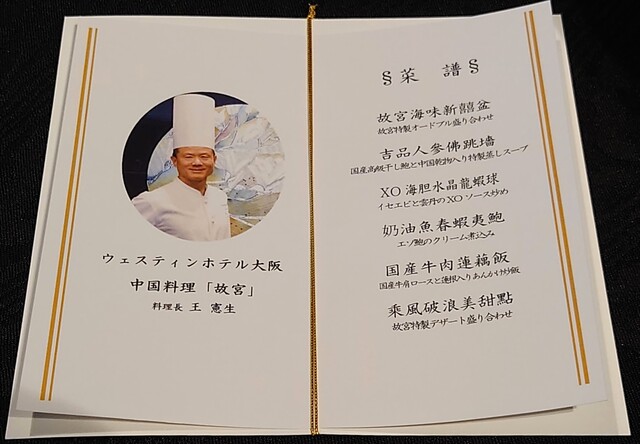 ウェスティンホテル大阪
中国料理「故宮」
料理長 王 憲生
§菜 譜§
故宮海味新囍盆
故宮特製オードブル盛り合わせ
吉品人參佛跳墻
国産高級干し鮑と中国乾物入り特製蒸しスープ
XO海胆水晶龍蝦球
イセエビと雲丹のXOソース炒め
奶油魚春蝦夷鮑
エゾ鮑のクリーム煮込み
国産牛肉蓮藕飯
国産牛肩ロースと蓮根入りあんかけ炒飯
乘風破浪美甜點
故宮特製デザート盛り合わせ